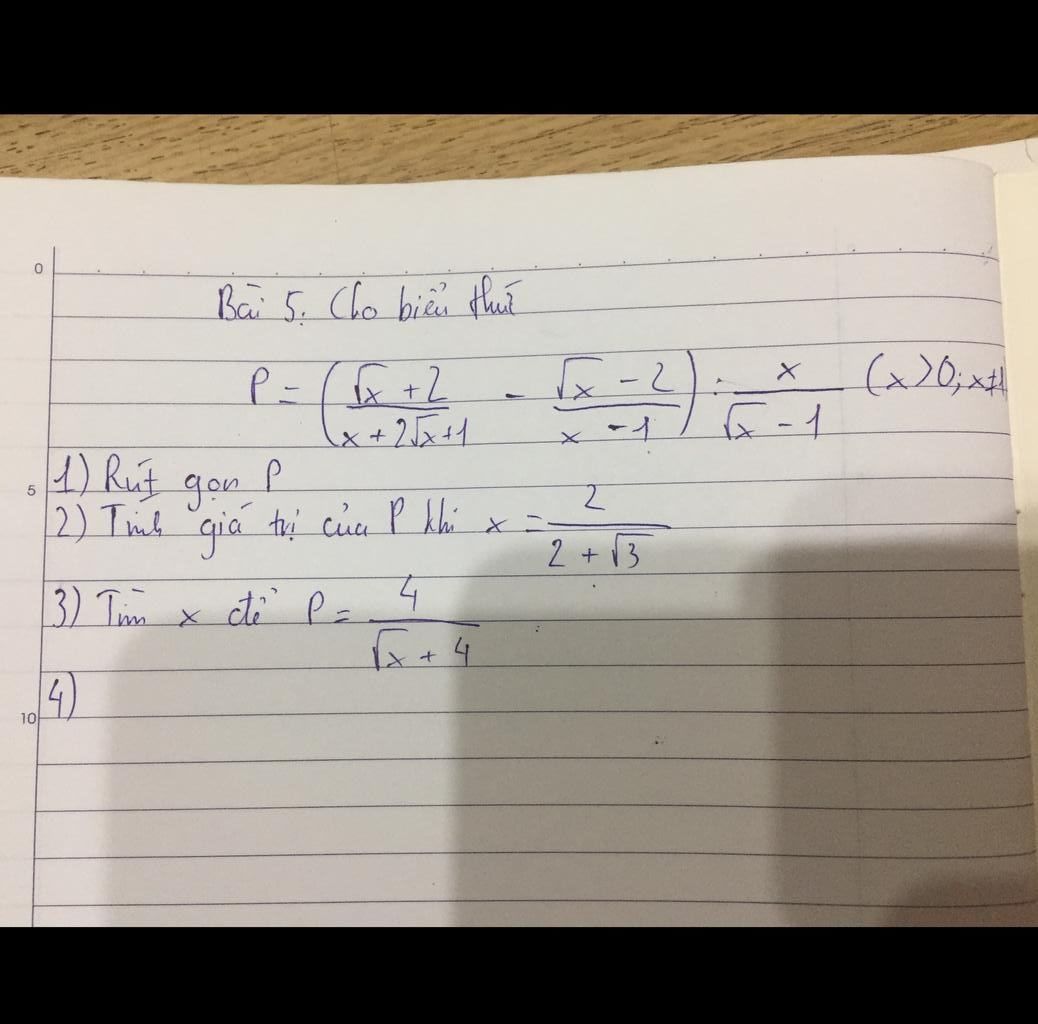 0
Bài 5. Cho biểu thức
P = (√x + 2 / x + 2√x + 1 - √x - 2 / x - 1) : x / √x - 1 (x > 0; x ≠ 1
5 1) Rút gọn P
2) Tính giá trị của P khi x = 2 / 2 + √3
3) Tìm x để P = 4 / √x + 4
4)
10